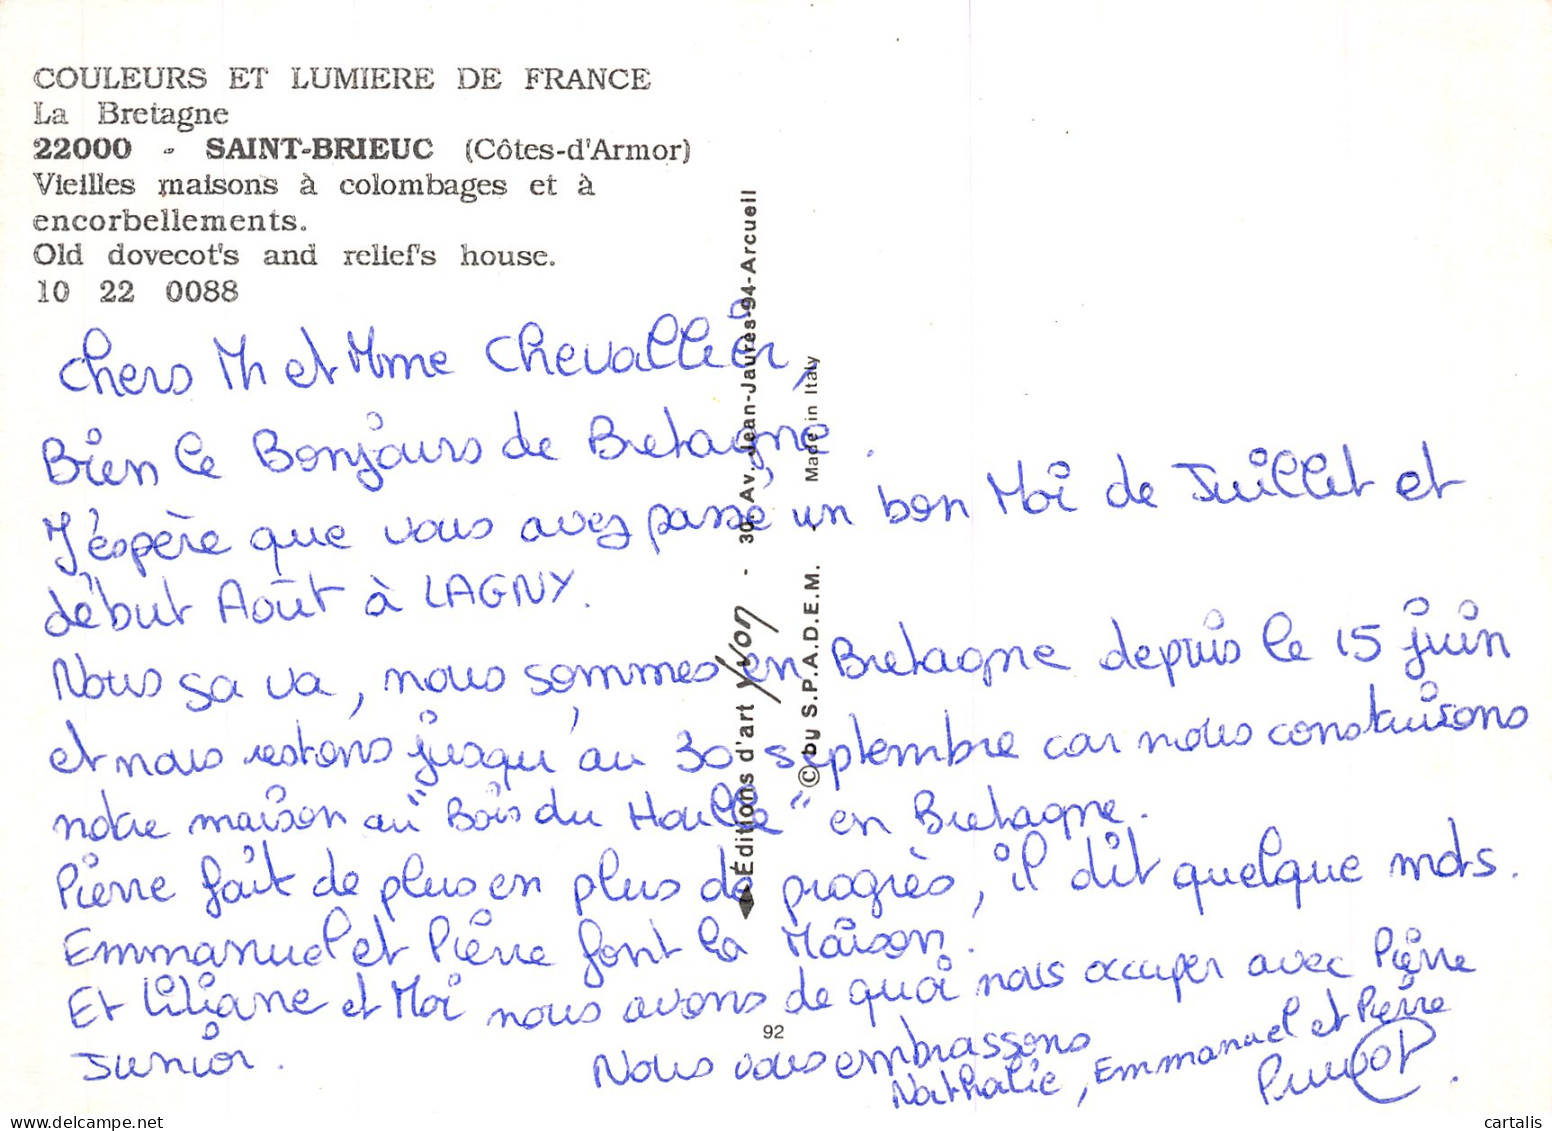 COULEURS ET LUMIERE DE FRANCE
La Bretagne
22000 - SAINT-BRIEUC (Côtes-d'Armor)
Vieilles maisons à colombages et à
encorbellements.
Old dovecot's and relief's house.
10 22 0088
Chers Mr et Mme Chevallier,
Bien le Bonjours de Bretagne.
J'éspère que vous avez passé un bon Moi de Juillet et
début Août à LAGNY.
Nous sa va, nous sommes en Bretagne depuis le 15 juin
et nous restons jusqu'au 30 septembre car nous construisons
notre maison au "Bois du Houlle" en Bretagne.
Pierre fait de plus en plus de progrès, il dit quelque mots.
Emmanuel et Pierre font la Maison.
Et Liliane et Moi nous avons de quoi nous occuper avec Pierre
Junior.
Nous vous embrassons
Nathalie, Emmanuel et Pierre
Éditions d'art Yvon - 30, Av. Jean-Jaurès-94-Arcueil
© by S.P.A.D.E.M. - Made in Italy
92
cartalis